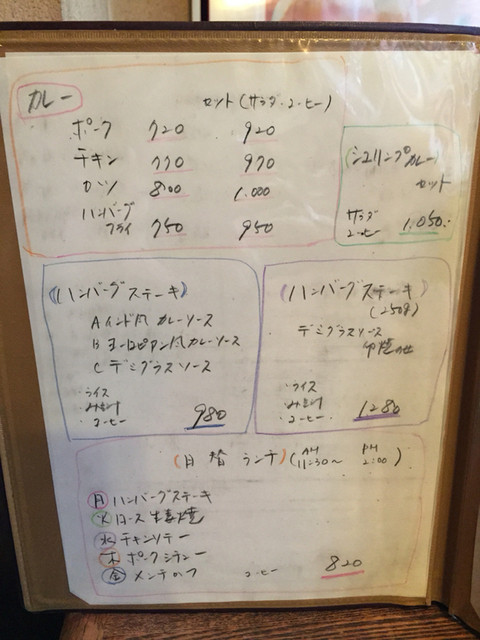 カレー
セット(サラダ・コーヒー)
ポーク 720 920
チキン 770 970
カツ 800 1.000
ハンバーグ
フライ 750 950
(シュリンプカレー)
セット
サラダ
コーヒー 1,050.-
(ハンバーグステーキ)
A インド風 カレーソース
B ヨーロピアン風カレーソース
C デミグラスソース
・ライス
・みそ汁
・コーヒー 980
(ハンバーグステーキ)
(250g)
デミグラスソース
・ライス
・みそ汁
・コーヒー 1.280
(日替ランチ) (AM 11:30〜 PM 2:00)
月 ハンバーグステーキ
火 ロース生姜焼
水 チキンソテー
木 ポークシチュー
金 メンチカツ コーヒー 820